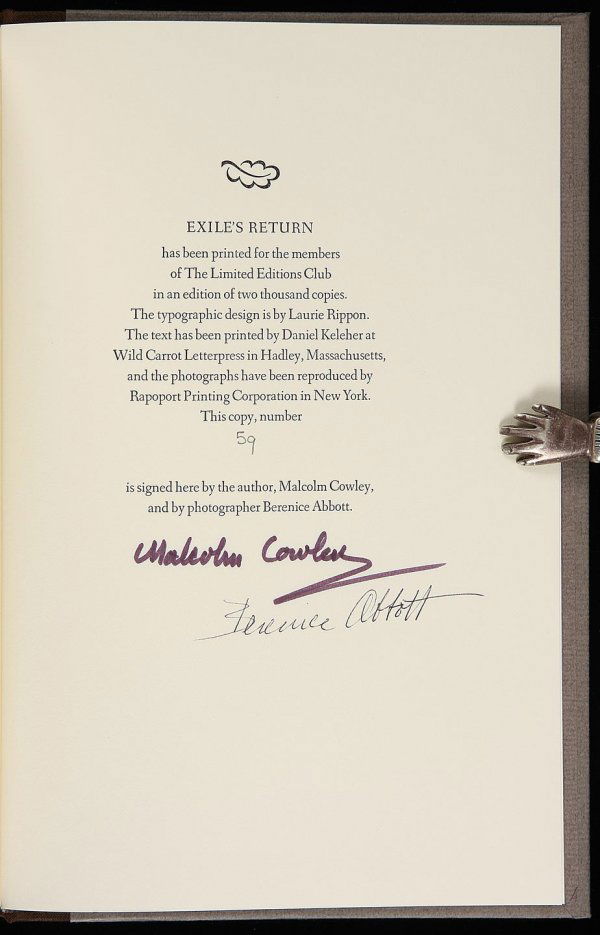 EXILE'S RETURN
has been printed for the members
of The Limited Editions Club
in an edition of two thousand copies.
The typographic design is by Laurie Rippon.
The text has been printed by Daniel Keleher at
Wild Carrot Letterpress in Hadley, Massachusetts,
and the photographs have been reproduced by
Rapoport Printing Corporation in New York.
This copy, number
59
is signed here by the author, Malcolm Cowley,
and by photographer Berenice Abbott.
Malcolm Cowley
Berenice Abbott